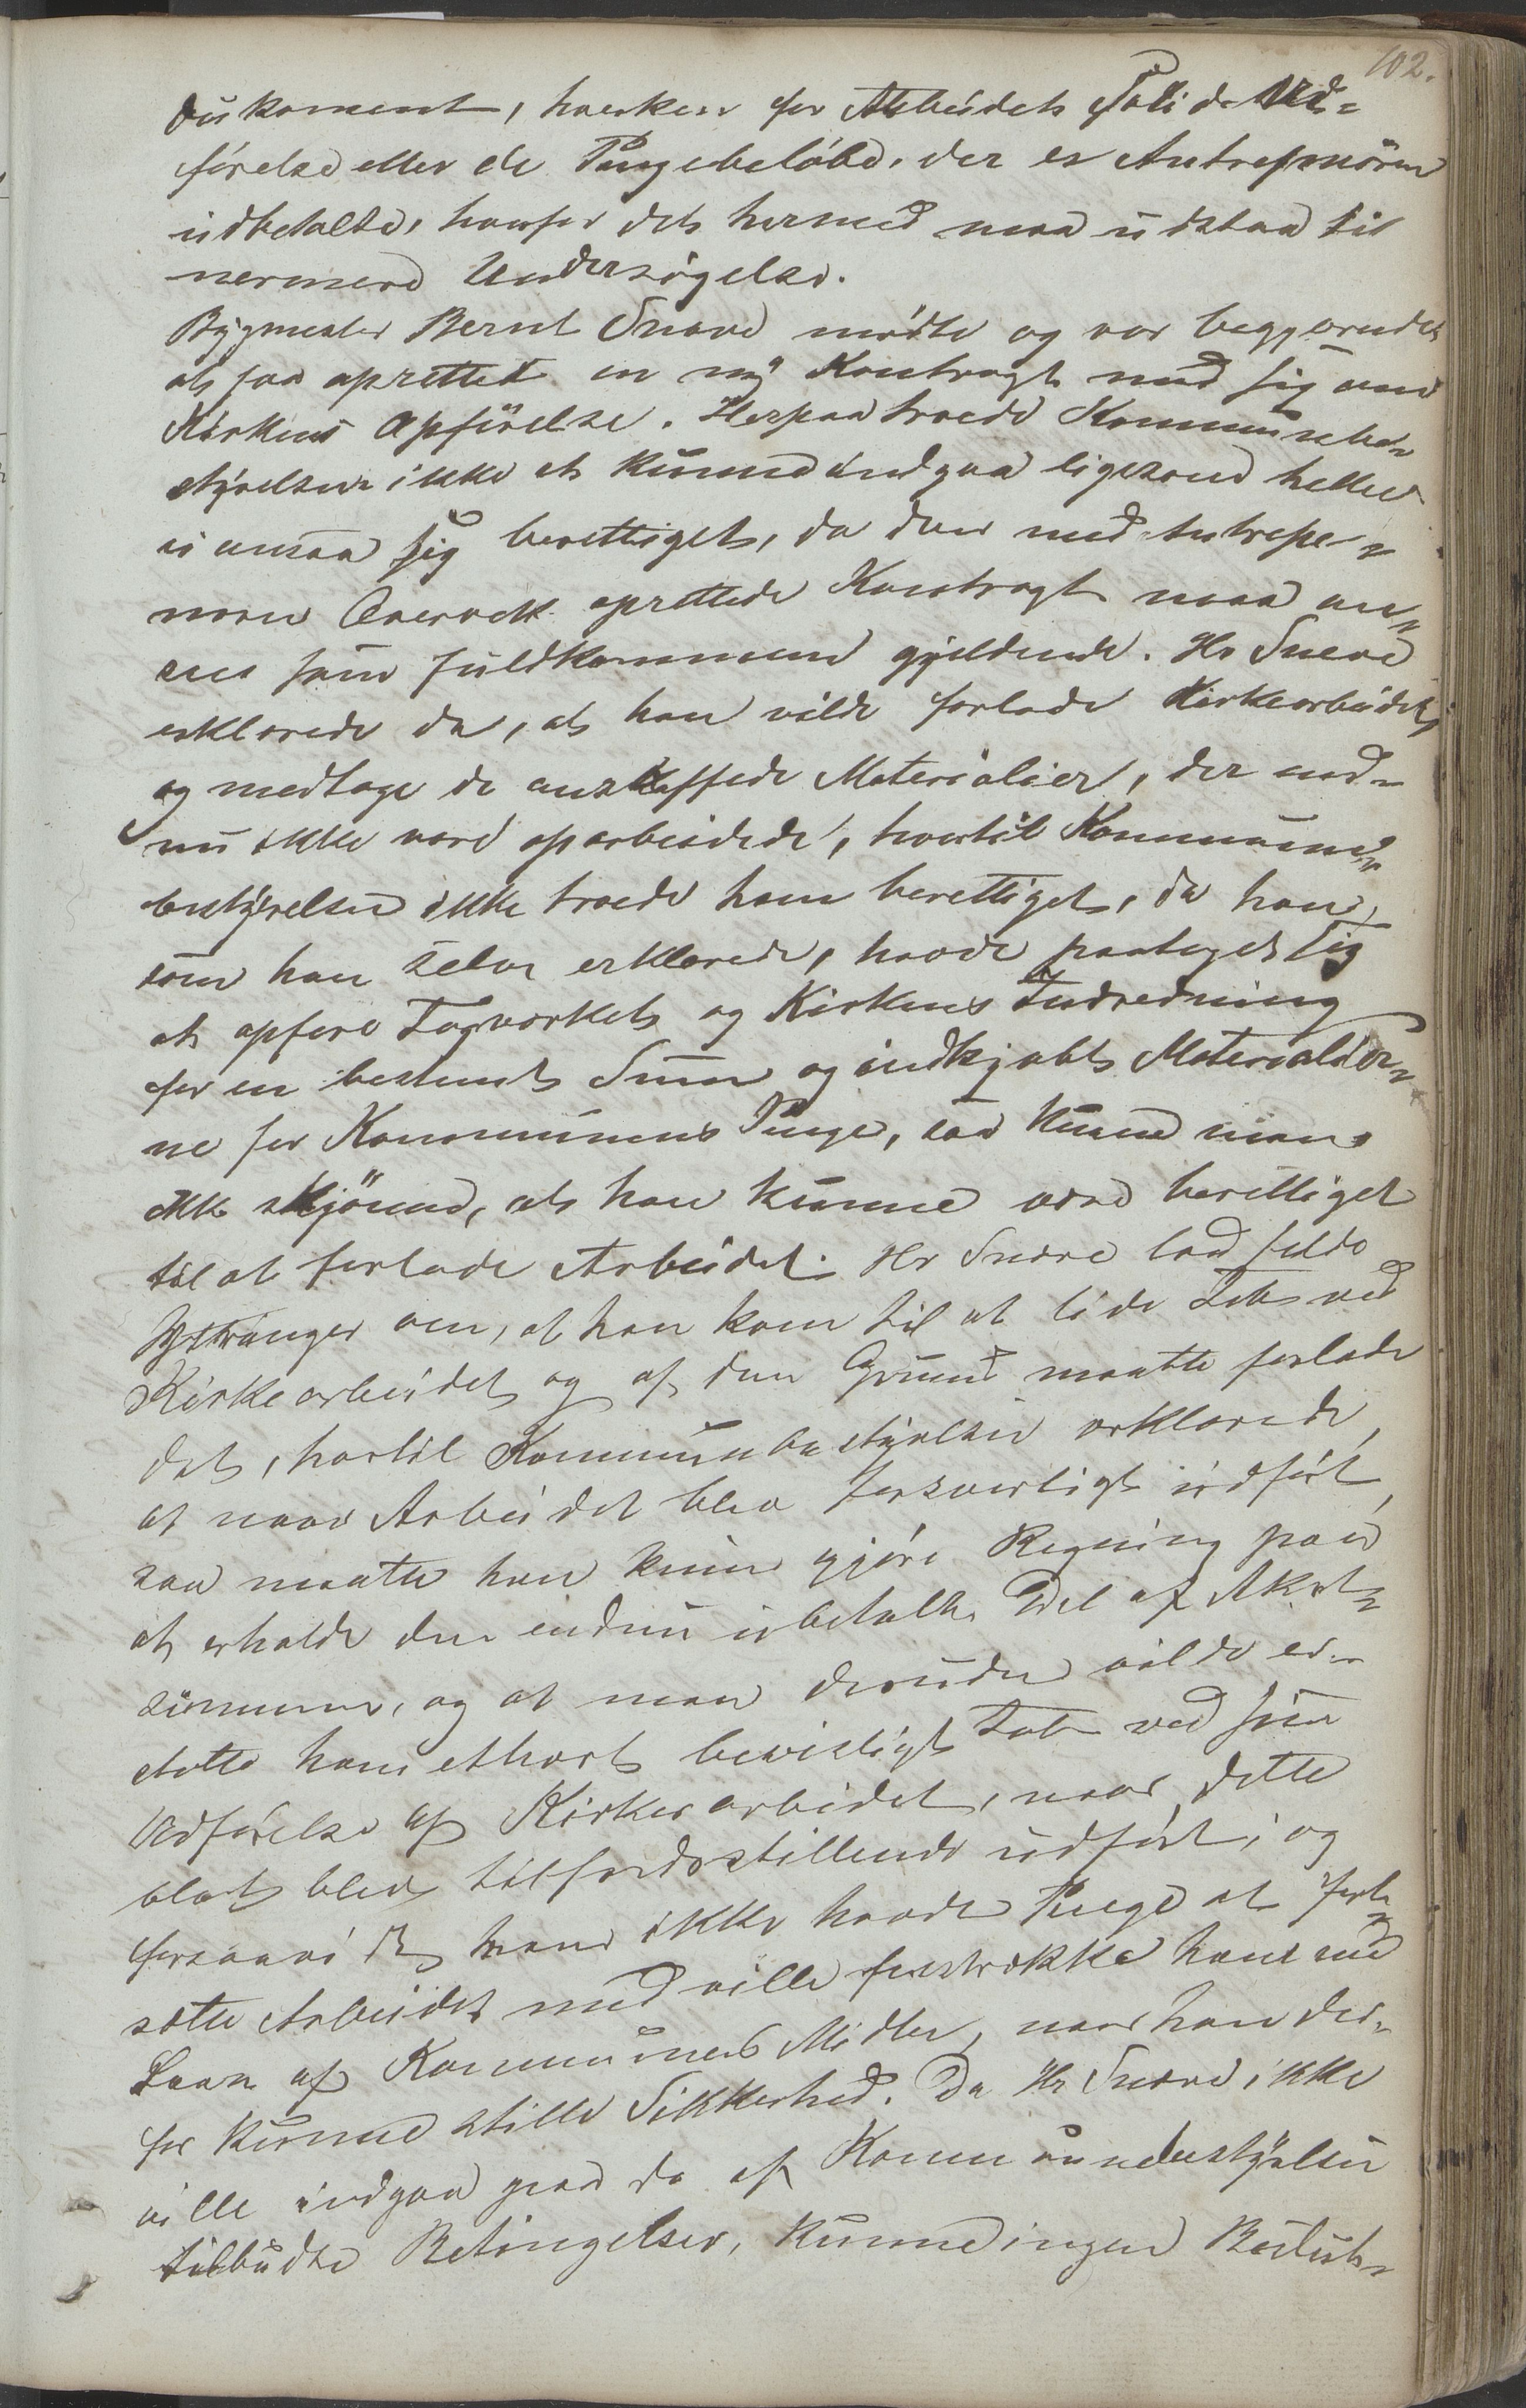 102.
Dokument, hverken for Arbeidets Solide Ud-
førelse eller de Pengebeløbe, der er Antrepnøren
udbetalte, hvorfor det hermed maa udstaa til
nermere Undersøgelse.
Bygmester Bernt Snøve mødte og var begjærendes
at faa oprettet en ny Kontragt med sig om
Kirkens Opførelse. Herpaa troede Kommunebe-
styrelsen ikke at kunne indgaa ligesom heller
ei ansaa sig berettiget, da den med Antrepe-
nøren oprettede Kontragt maa an-
sees som fuldkommen gjeldende. Hr Snøve
erklærede da, at han vilde forlade Kirkearbeidet,
og medtage de anskaffede Materialier, der end-
nu ikke vare oparbeidede, hvortil Kommune-
bestyrelsen ikke troede ham berettiget, da han,
som han selv erklærede, havde paataget sig
at opføre Tagverket og Kirkens Indredning
for en bestemt Sum og indkjøbt Materialier-
ne for Kommunens Penge, saa kunne man
ikke skjønne, at han kunne være berettiget
til at forlade Arbeidet. Hr Snøve lod falde
Yttringer om, at han kom til at lide Tab ved
Kirkearbeidet og af den Grund maatte forlade
det, hvortil Kommunebestyrelsen erklærede,
at naar Arbeidet blev forsvarligt udført,
saa maatte han kun gjøre Regning paa
at erholde den endnu ubetalte Del af Akort-
summen, og at man desuden vilde er-
statte ham ethvert bevisligt Tab ved sin
Udførelse af Kirkearbeidet, naar dette
blot blev tilfredsstillende udført; og
forsaavidt han ikke havde Penge at fort-
sætte Arbeidet med ville forstrække ham med
Laan af Kommunens Midler, naar han der-
for kunne stille Sikkerhed. Da Hr Snøve ikke
ville indgaa paa de af Kommunebestyrelsen
tilbudte Betingelser, kunne ingen Beslut-